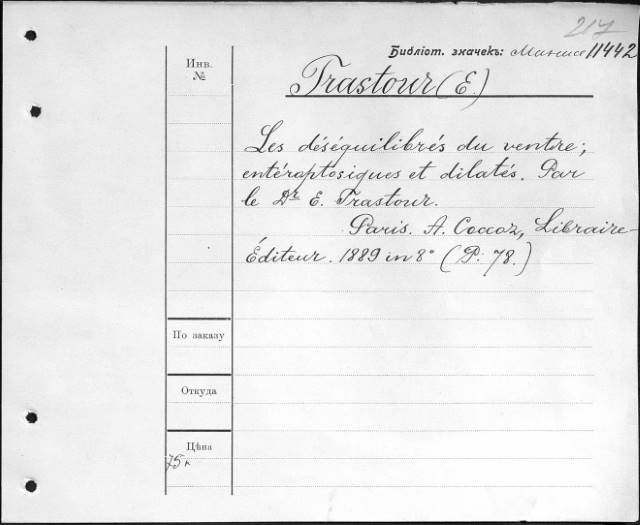 217
Библіот. значекъ: 11442
Инв.
№
Trastour (E.)
Les déséquilibrés du ventre;
entéroptosiques et dilatés. Par
le Dr E. Trastour.
Paris. A. Coccoz, Libraire-
Éditeur. 1889 in 8° (P. 78.)
По заказу
Откуда
Цѣна
75 к